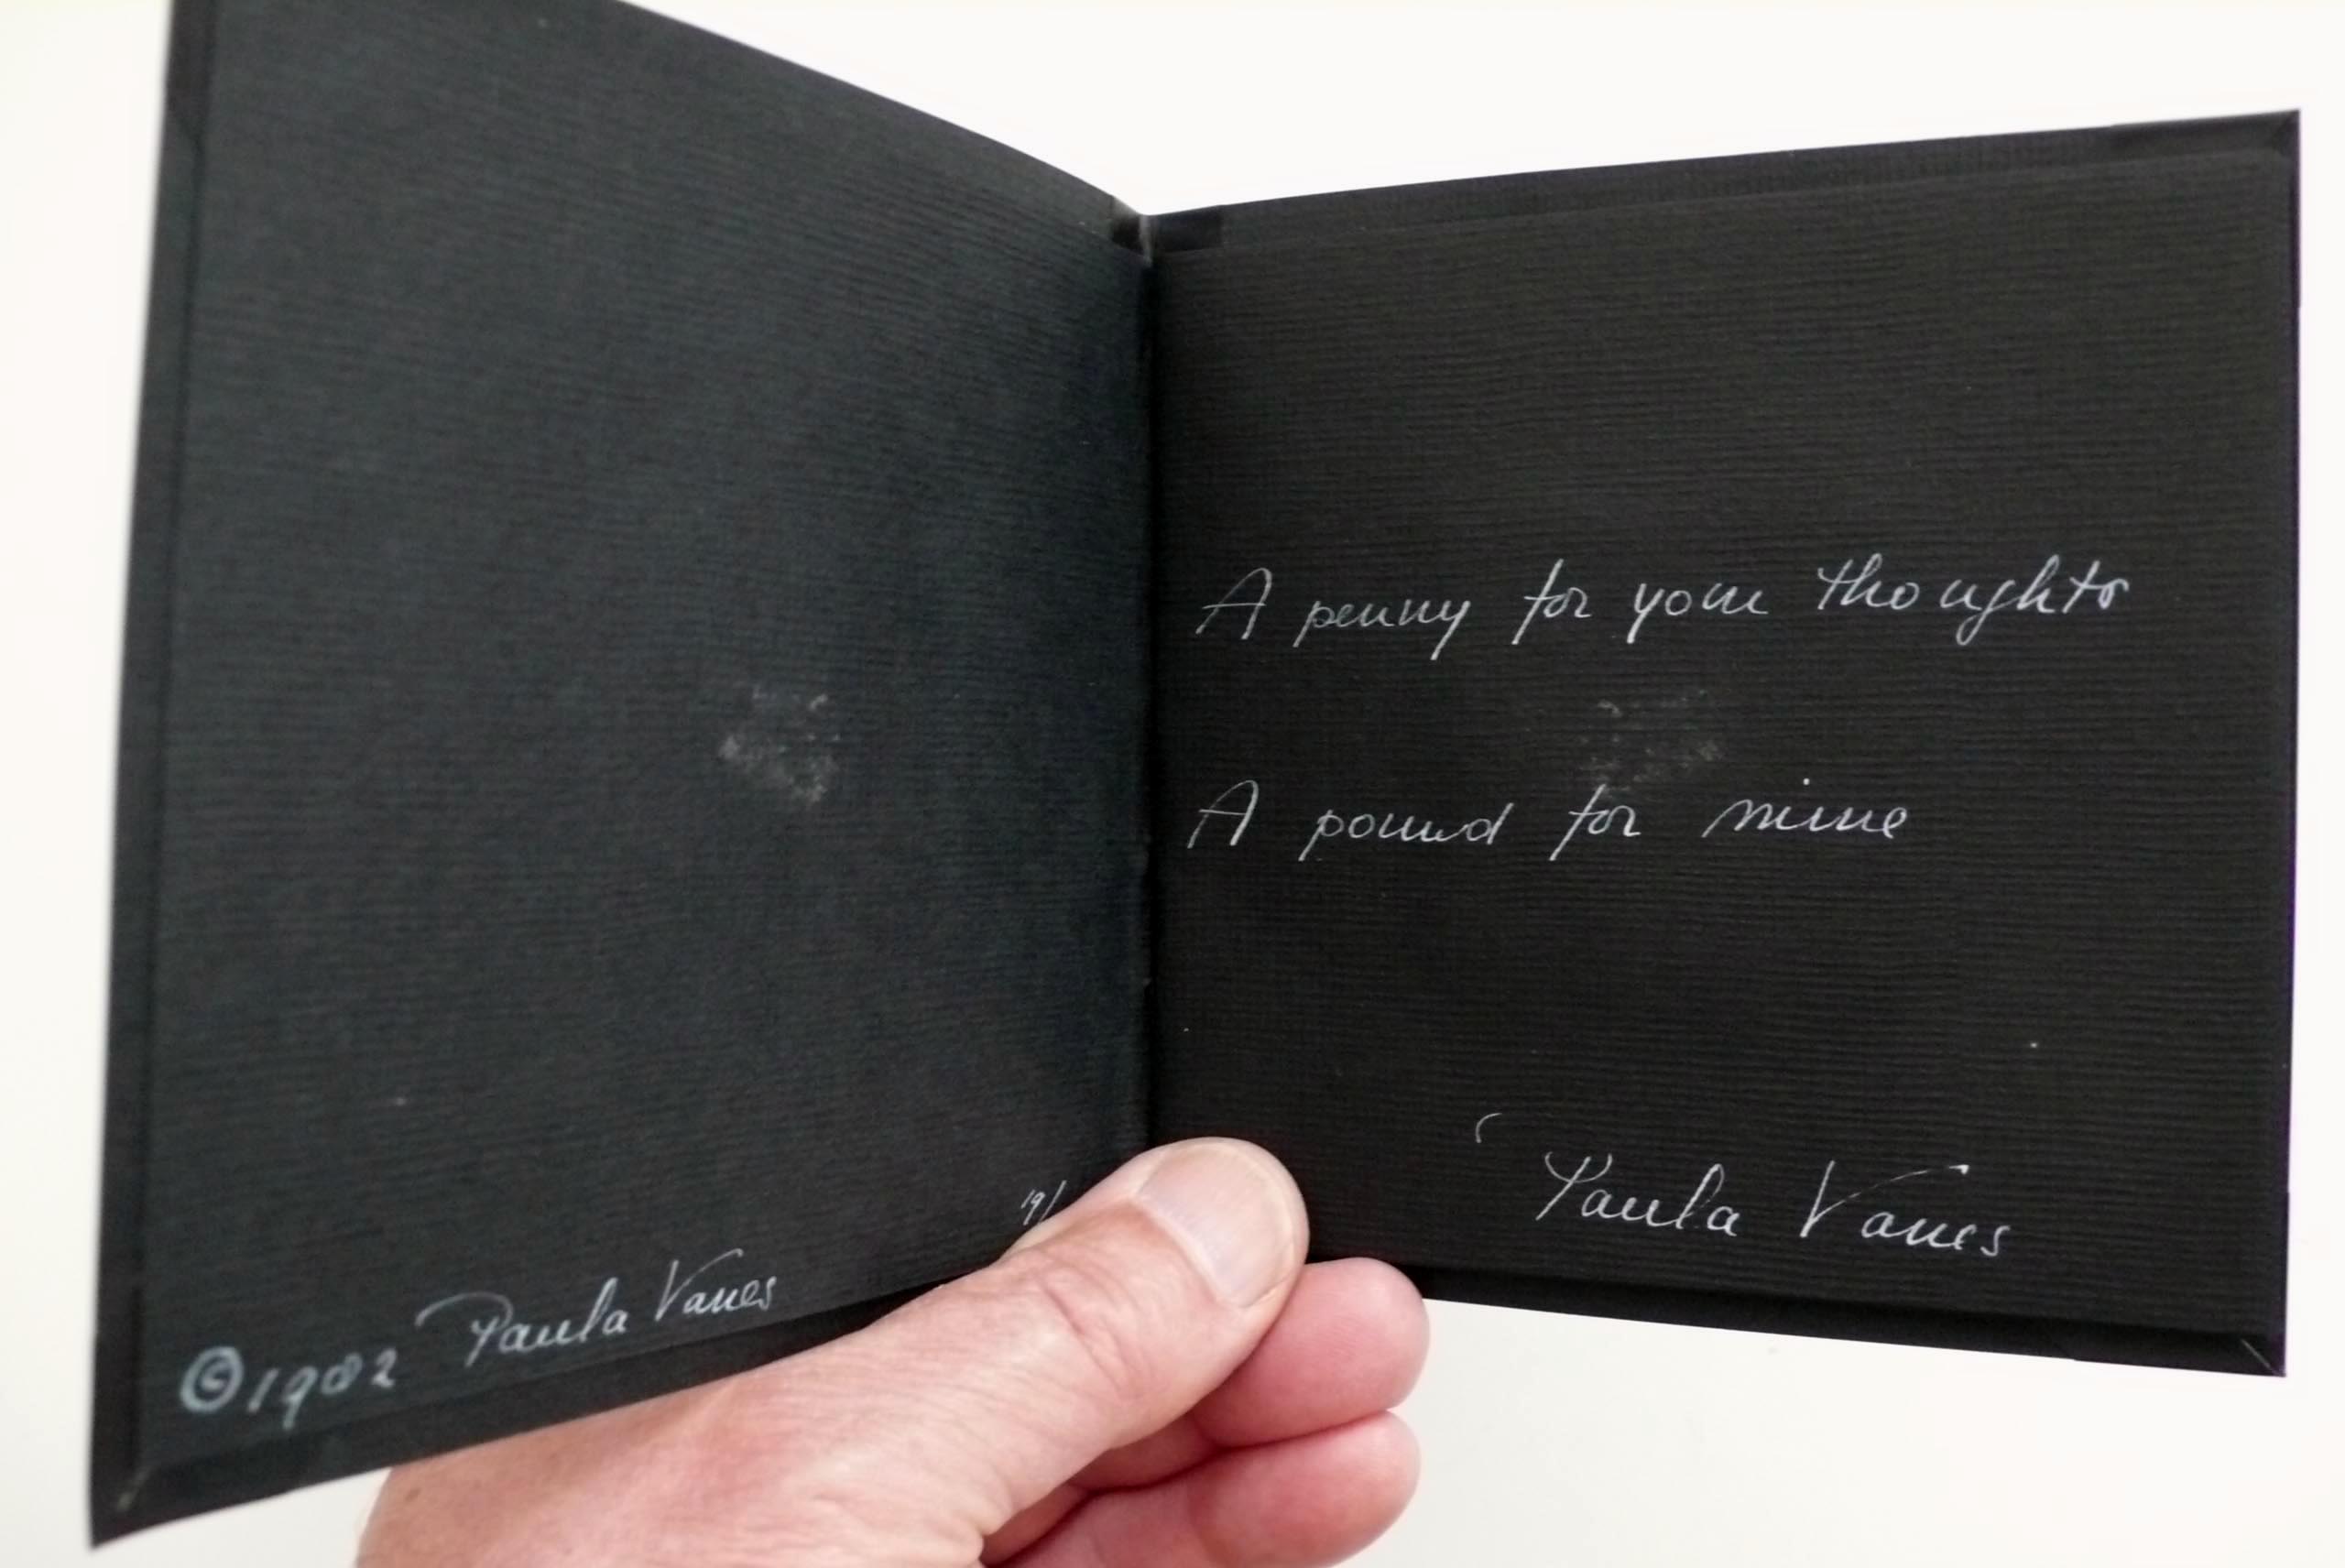 19/
© 1982 Paula Vanes
A penny for your thoughts
A pound for mine
Paula Vanes